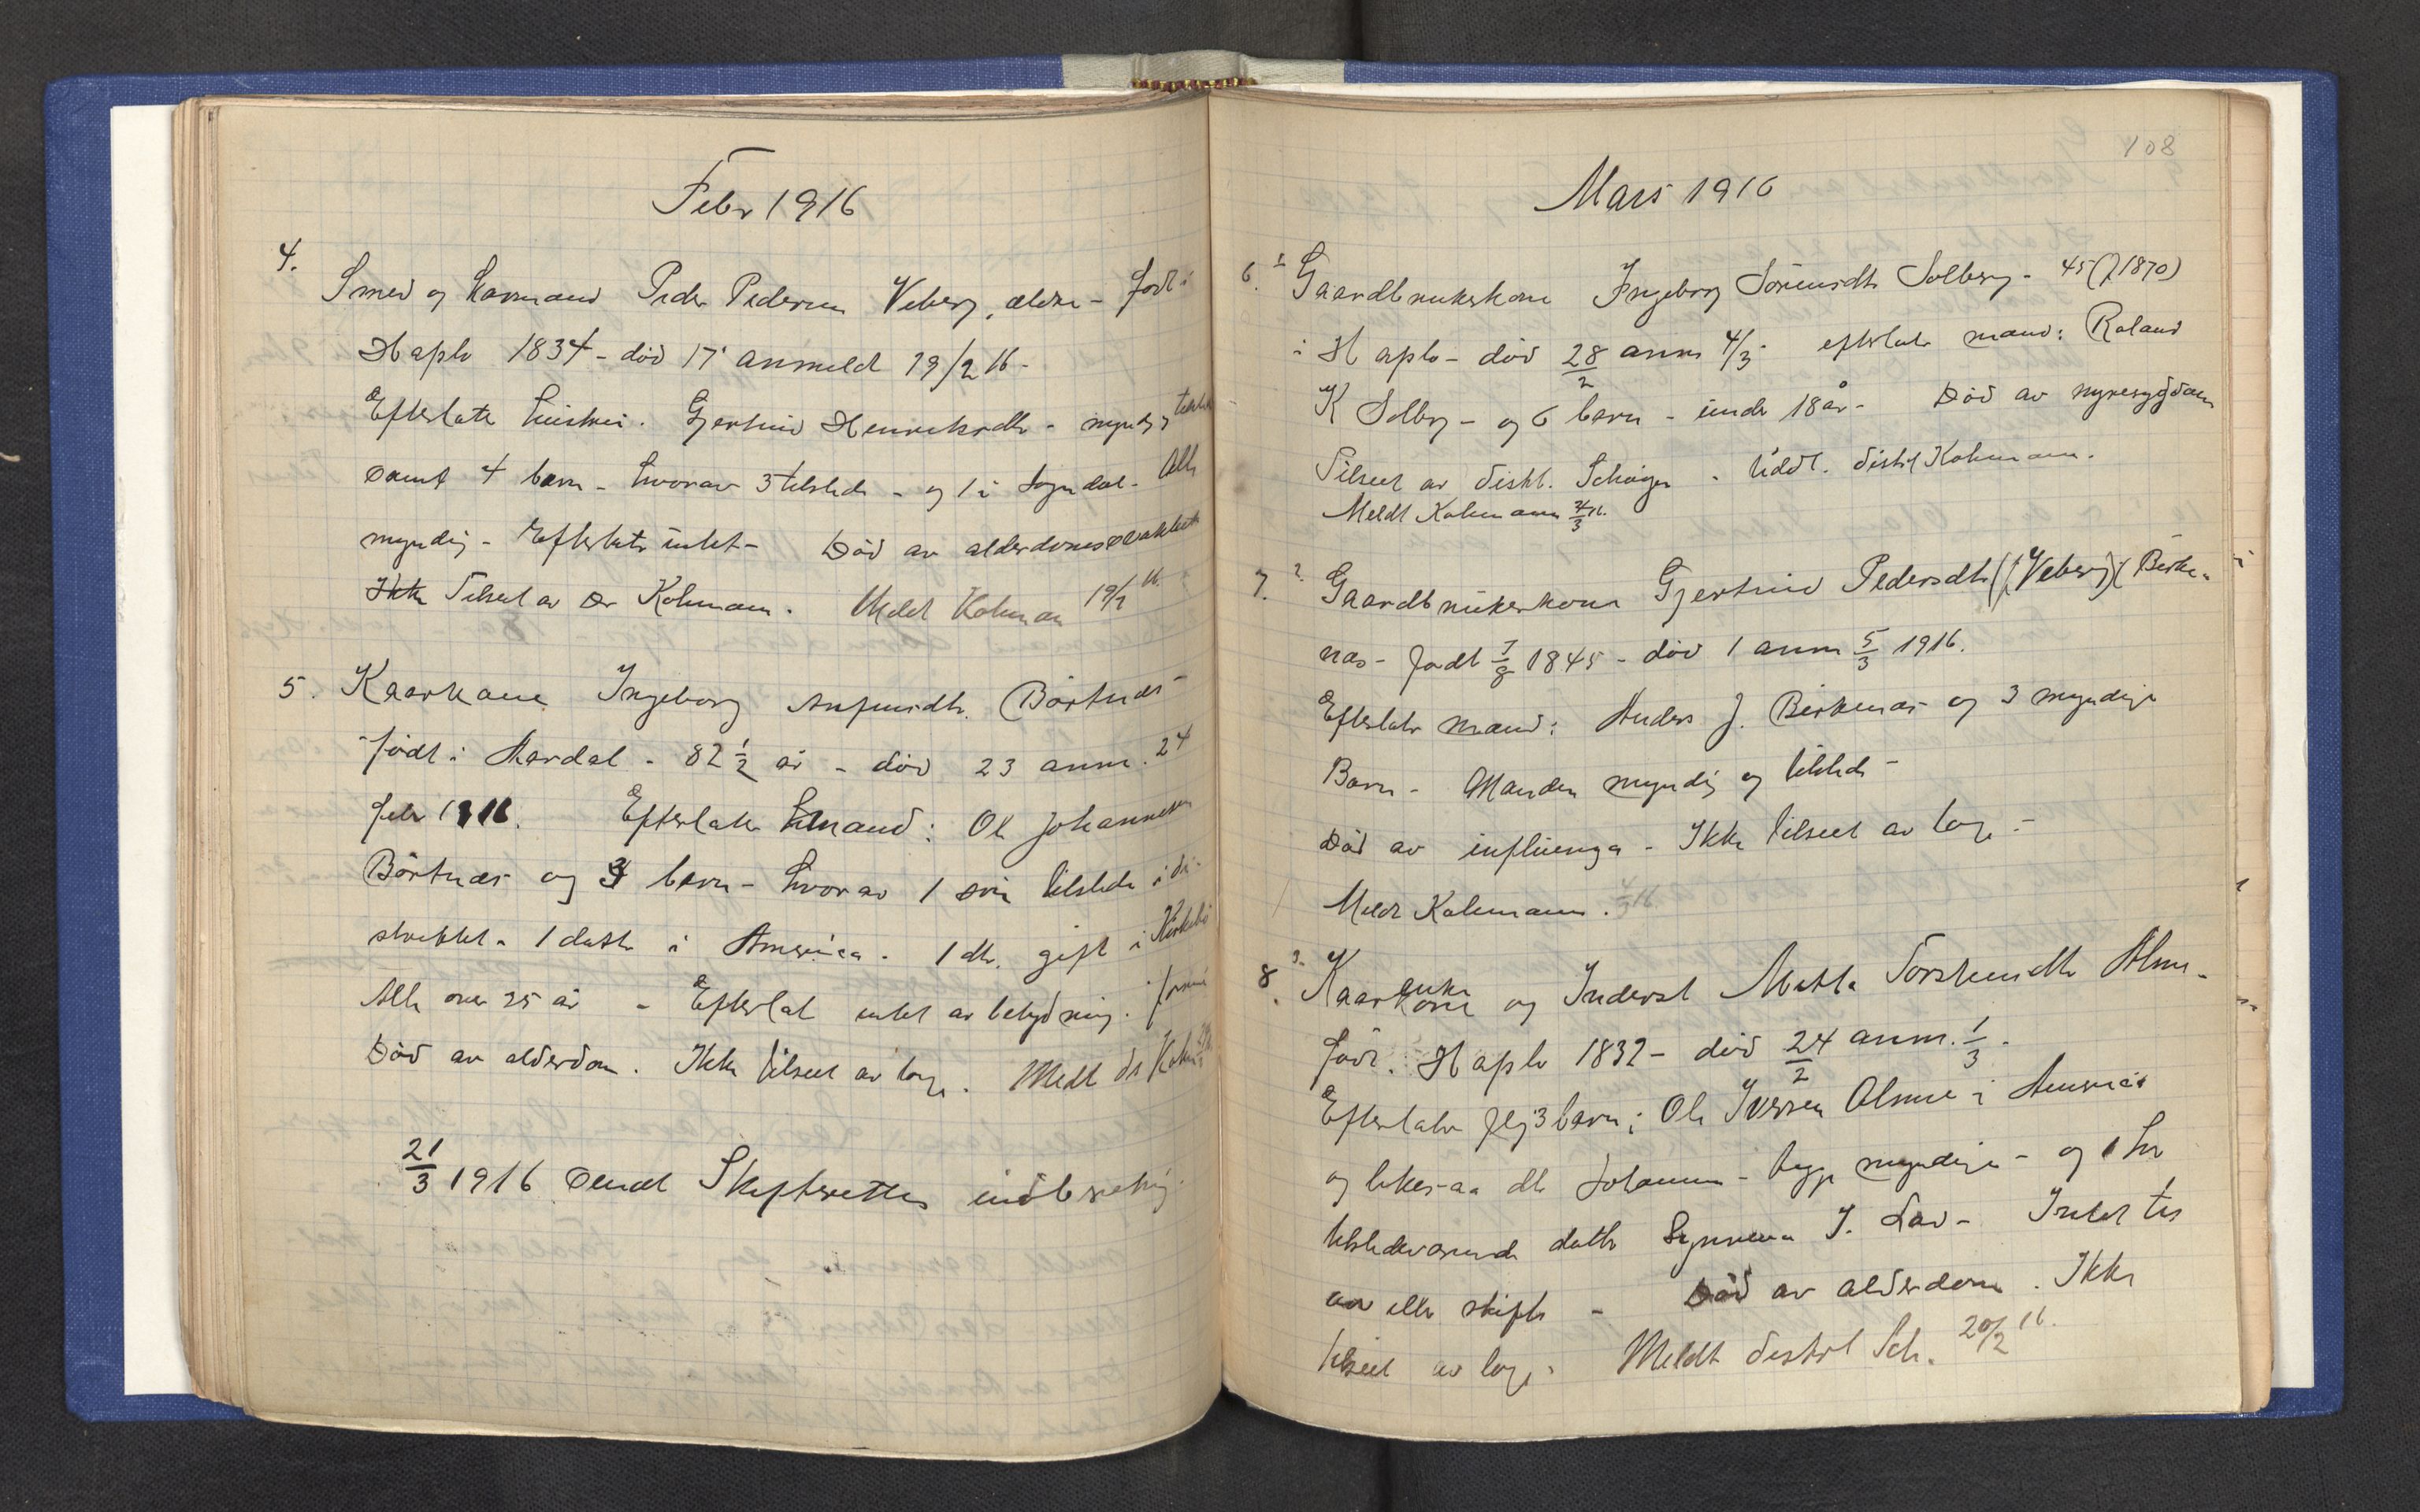 Febr 1916
4.
Smed og Kaarmand Peder Pedersen Veberg, ældre - født i
Hafslo 1834 - død 17 anmeldt 19/2 16 -
Efterlater hustru. Gjertrud Henriksdtr - myndig
samt 4 barn - hvorav 3 tilstede - og 1 i Sogndal - Alle
myndig - Efterlater intet - Død av alderdomssvakhet
Ikke Tilseet av Dr Kohmann. Meldt Kohmann 19/2 16.
5. Kaarkone Ingeborg Anfinsdtr. Børtnes -
født i Aardal - 82 1/2 år - død 23 anm. 24
febr 1916. Efterlater mand: Ole Johannesen
Børtnæs og 3 barn - hvorav 1 søn tilstede i di-
striktet - 1 datter i America - 1 dtr. gift i Kirkebø
Alle over 25 år - Efterlat intet av betydning.
Død av alderdom. Ikke tilseet av læge. Meldt dr Kohm
21/3 1916 sendt Skifteretten indberetning.
108
Mars 1916
6. 1 Gaardbrukerkone Ingeborg Sørensdtr Solberg - 45 (f 1870)
i Hafslo - død 28/2 anm 4/3 - efterlater mand: Roland
K Solberg - og 6 barn - under 18 år - Død av nyresygdom
Tilseet av distl. Uddl. distrl Kohmann.
Meldt Kohmann 4/3 16.
7. 2. Gaardbrukerkone Gjertrud Pedersdtr (f. Veberg) Birke-
næs - født 7/8 1845 - død 1 anm 5/3 1916.
Efterlater mand: Anders J. Birkenæs og 3 myndige
Barn - Manden myndig og tilstede -
Død av influenza - Ikke tilseet av læge -
Meldt Kohmann. 4/3 16.
8. 3. Kaarkone enke og Inderst Metta Torsteinsdtr Alme -
født i Hafslo 1832 - død 24/2 anm. 1/3 -
Efterlater flg 3 barn: Ole Iversen Alme i America
og likesaa dtr Johanna - begge myndige - og 1 her
tilstedeværende datter Synneva I. Lad - Intet til
arv eller skifte - Død av alderdom. Ikke
tilseet av læge. Meldt distrl Sch. 20/2 16.